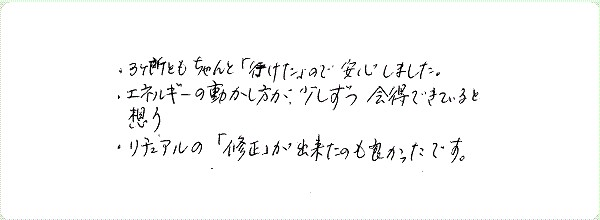 ・3ヶ所ともちゃんと「行けた」ので安心しました。
・エネルギーの動かし方が、少しずつ会得できていると
想う
・リチュアルの「修正」が出来たのも良かったです。